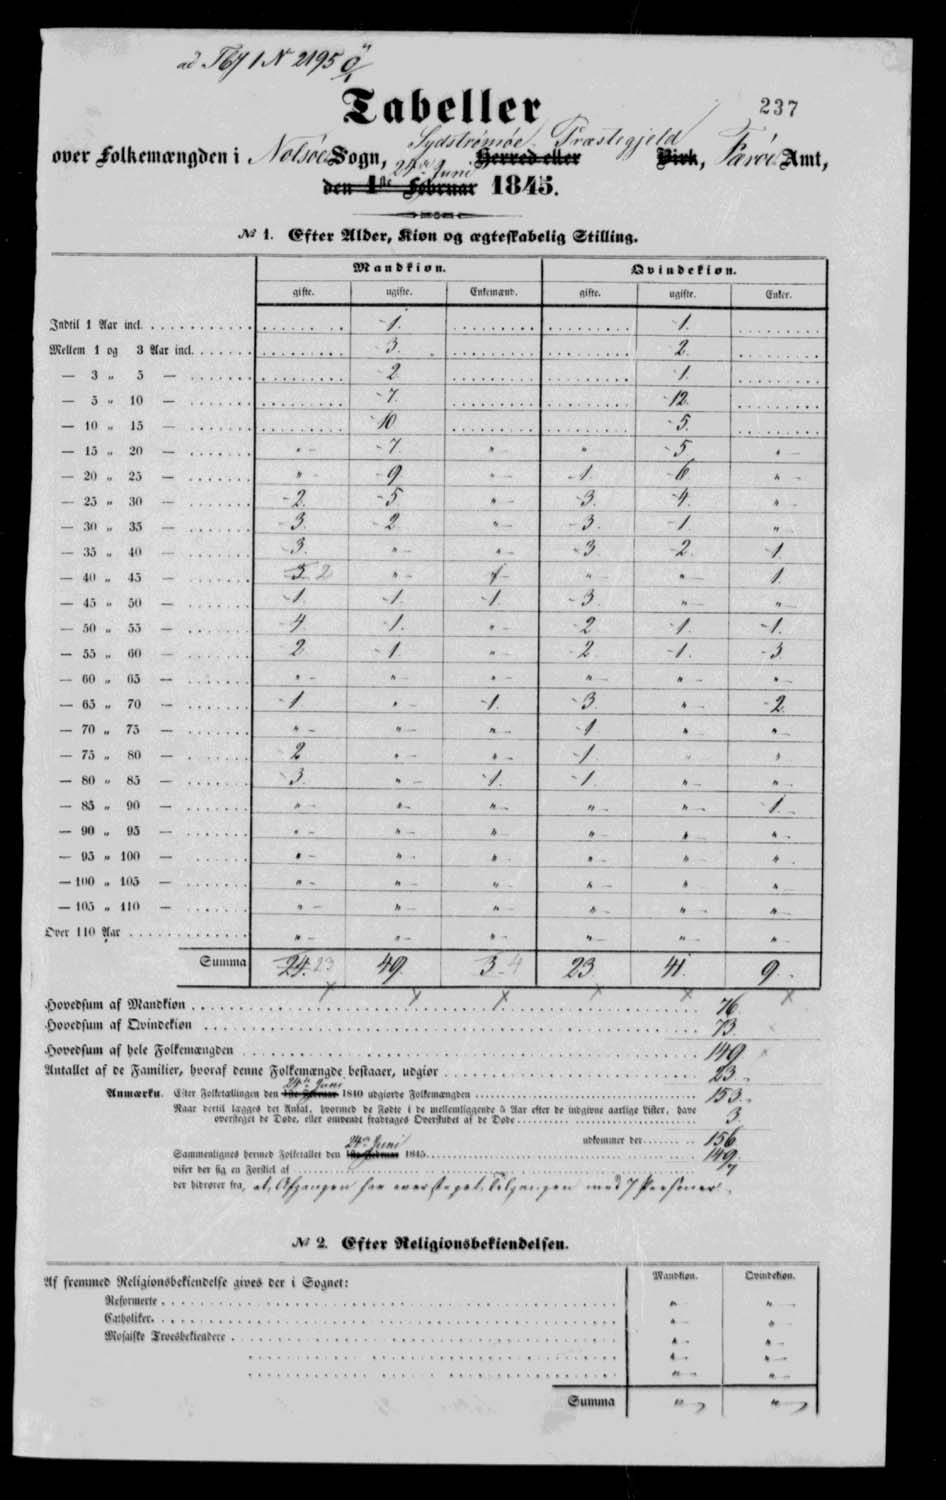 ad Tby 1 N 2195
Tabeller
237
Sydstrømøe Præstegjeld
over Folkemængden i Nolsøe Sogn, Herred eller Birk, Færøe Amt,
24de Juni
den 1ste Februar 1845.
№ 1. Efter Alder, Kion og ægteskabelig Stilling.
Mandkion. Qvindekion.
gifte. ugifte. Enkemænd. gifte. ugifte. Enker.
Indtil 1 Aar incl. 1. 1.
Mellem 1 og 3 Aar incl. 3. 2.
— 3 „ 5 — 2. 1.
— 5 „ 10 — 7. 12.
— 10 „ 15 — 10. 5.
— 15 „ 20 — „ 7. „ „ 5. „
— 20 „ 25 — „ 9. „ 1. 6. „
— 25 „ 30 — 2. 5. „ 3. 4. „
— 30 „ 35 — 3. 2. „ 3. 1. „
— 35 „ 40 — 3. „ „ 3. 2. 1.
— 40 „ 45 — 3. 2 „ 1 „ „ 1.
— 45 „ 50 — 1. 1. 1. 3. „ „
— 50 „ 55 — 4. 1. „ 2. 1. 1.
— 55 „ 60 — 2. 1. „ 2. 1. 3.
— 60 „ 65 — „ „ „ „ „ „
— 65 „ 70 — 1. „ 1. 3. „ 2.
— 70 „ 75 — „ „ „ 1. „ „
— 75 „ 80 — 2. „ „ 1. „ „
— 80 „ 85 — 3. „ 1. 1. „ „
— 85 „ 90 — „ „ „ „ „ 1.
— 90 „ 95 — „ „ „ „ „ „
— 95 „ 100 — „ „ „ „ „ „
— 100 „ 105 — „ „ „ „ „ „
— 105 „ 110 — „ „ „ „ „ „
Over 110 Aar „ „ „ „ „ „
Summa 24. 23 49. 3. 4 23. 41. 9.
Hovedsum af Mandkion 76.
Hovedsum af Qvindekion 73.
Hovedsum af hele Folkemængden 149.
Antallet af de Familier, hvoraf denne Folkemængde bestaaer, udgiør 23.
24de Juni
Anmærkn. Efter Folketællingen den 1ste Februar 1840 udgiorde Folkemængden 153.
Naar dertil lægges det Antal, hvormed de Fødte i de mellemliggende 5 Aar efter de indgivne aarlige Lister, have
oversteget de Døde, eller omvendt fradrages Overskudet af de Døde 3.
udkommer der 156
24de Juni
Sammenlignes hermed Folketallet den 1ste Februar 1845 149.
viser der sig en Forskiel af 7
der hidrører fra, at Afgangen har oversteget Tilgangen med 7 Personer.
№ 2. Efter Religionsbekiendelsen.
Mandkion. Qvindekion.
Af fremmed Religionsbekiendelse gives der i Sognet:
Reformerte „ „
Catholiker. „ „
Mosaiske Troesbekiendere „ „
„ „
„ „
Summa „ „